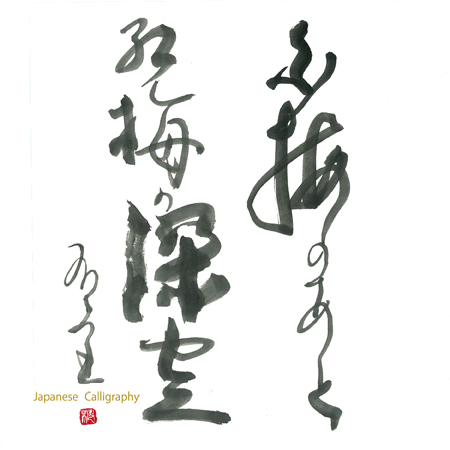 白梅のあと
紅梅の深空
Japanese Calligraphy